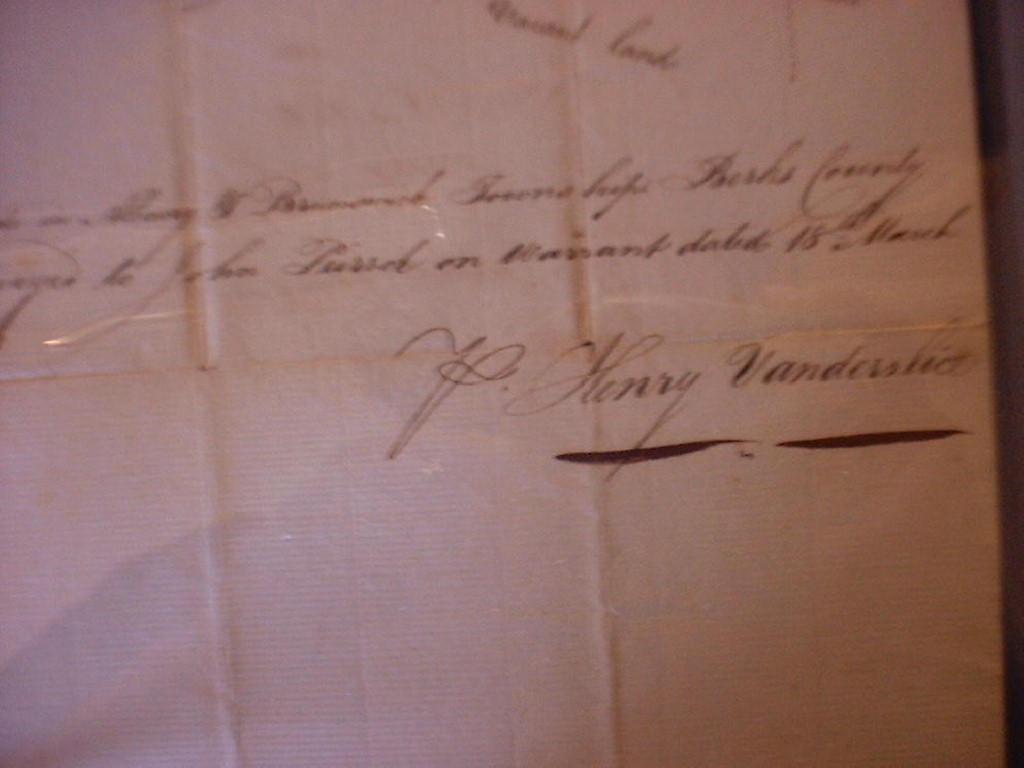 Vacant land
in Albany & Brunswick Township Berks County
to John Pursel on Warrant dated 18th March
P. Henry Vanderslice